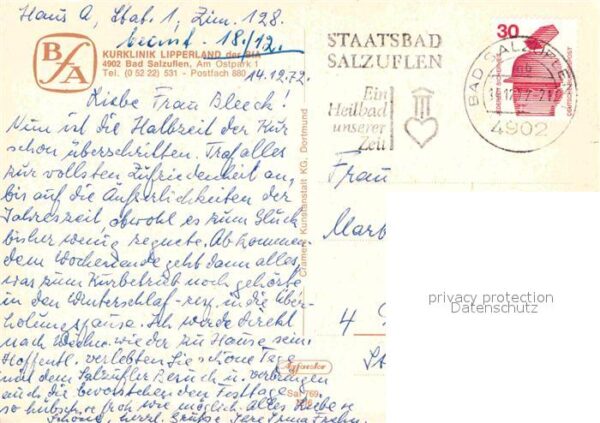 Haus A, Stat. 1, Zim. 128.
beantw. 18./12.
BfA
KURKLINIK LIPPERLAND der BfA
4902 Bad Salzuflen, Am Ostpark 1
Tel. (0 52 22) 531 - Postfach 880
14.12.72.
Liebe Frau Bleeck!
Nun ist die Halbzeit der Kur
schon überschritten. Traf alles
zur vollsten Zufriedenheit an,
bis auf die Äußerlichkeiten der
Jahreszeit, obwohl es zum Glück
bisher wenig regnete. Ab kommen-
dem Wochenende geht dann alles,
was zum Kurbetrieb noch gehörte
in den Winterschlaf resp. in die Über-
holungspause. Ich werde direkt
nach Weihn. wieder zu Hause sein
Hoffentl. verlebten Sie schöne Tage
nach dem Salzufler Besuch u. verbringen
auch die bevorstehenden Festtage
so hübsch u. froh wie möglich. Alles Liebe u.
Schöne, herzl. Grüße Ihre Irma
Cramers Kunstanstalt KG, Dortmund
Sal 769
STAATSBAD
SALZUFLEN
Ein
Heilbad
unserer
Zeit
BAD SALZUFLEN
4902
30
DEUTSCHE BUNDESPOST
Frau
Marb
4
privacy protection
Datenschutz